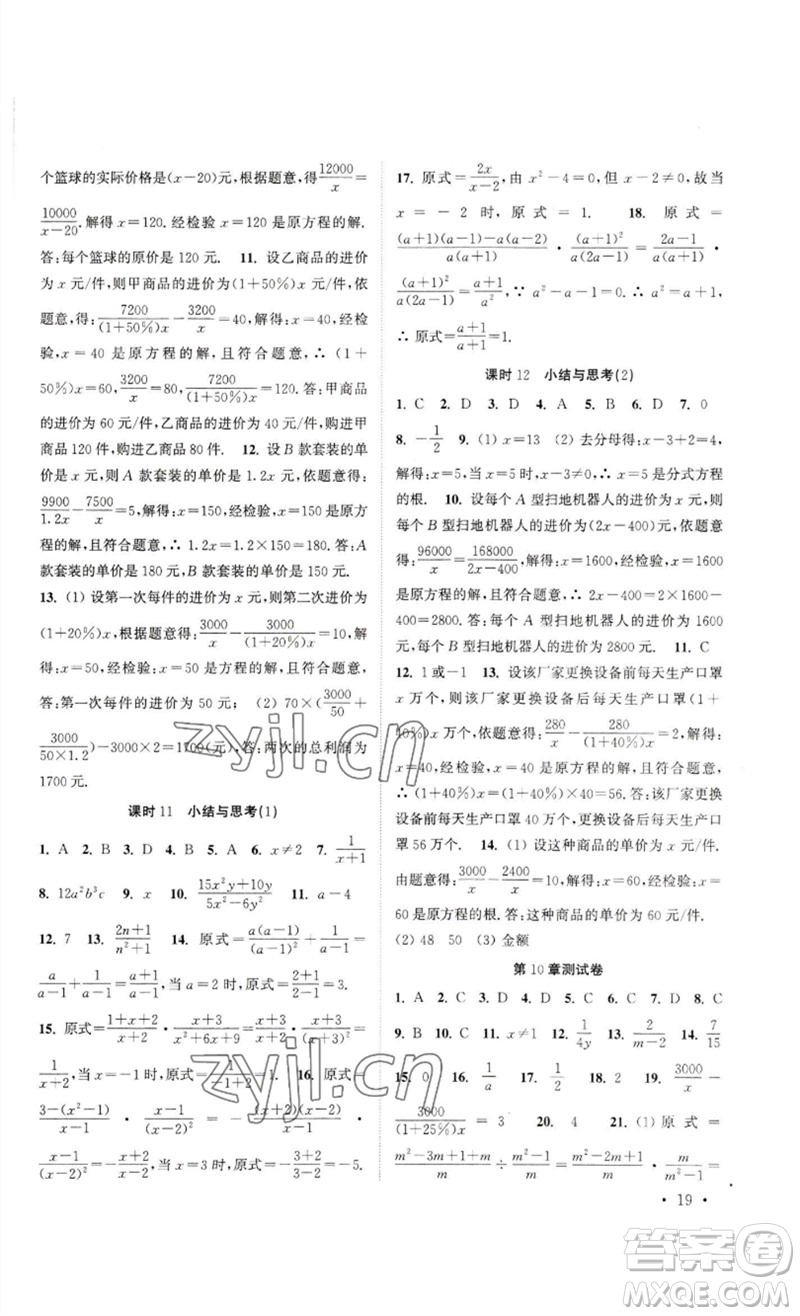 个篮球的实际价格是(x-20)元,根据题意,得12000/x=
10000/(x-20).解得x=120.经检验x=120是原方程的解.
答:每个篮球的原价是120元. 11. 设乙商品的进价
为x元/件,则甲商品的进价为(1+50%)x元/件,依
题意,得:7200/((1+50%)x)-3200/x=40,解得:x=40,经检
验,x=40是原方程的解,且符合题意,∴(1+
50%)x=60,3200/x=80,7200/((1+50%)x)=120.答:甲商品
的进价为60元/件,乙商品的进价为40元/件,购进甲
商品120件,购进乙商品80件. 12. 设B款套装的单
价是x元,则A款套装的单价是1.2x元,依题意得:
9900/(1.2x)-7500/x=5,解得:x=150,经检验,x=150是原方
程的解,且符合题意,∴1.2x=1.2×150=180.答:A
款套装的单价是180元,B款套装的单价是150元.
13. (1)设第一次每件的进价为x元,则第二次进价为
(1+20%)x,根据题意得:3000/x-3000/((1+20%)x)=10,解
得:x=50,经检验:x=50是方程的解,且符合题意,
答:第一次每件的进价为50元; (2)70×(3000/50+
3000/(50×1.2))-3000×2=1700(元),答:两次的总利润为
1700元.
课时11 小结与思考(1)
1. A 2. B 3. A 4. B 5. A 6. x≠2 7. 1/(x+1)
8. 12a²b³c 9. x 10. (15x²y+10y)/(5x²-6y²) 11. a-4
12. 7 13. (2n+1)/(n²+1) 14. 原式=a(a-1)/(a-1)²+1/(a-1)=
a/(a-1)+1/(a-1)=(a+1)/(a-1),当a=2时,原式=(2+1)/(2-1)=3.
15. 原式=(1+x+2)/(x+2)·(x+3)/(x²+6x+9)=(x+3)/(x+2)·(x+3)/(x+3)²=
1/(x+2),当x=-1时,原式=1/(-1+2)=1. 16. 原式=
(3-(x²-1))/(x-1)·(x-1)/(x-2)²=-(x+2)(x-2)/(x-1)·
(x-1)/(x-2)²=-(x+2)/(x-2),当x=3时,原式=-(3+2)/(3-2)=-5.
17. 原式=2x/(x-2),由x²-4=0,但x-2≠0,故当
x=-2时,原式=1. 18. 原式=
((a+1)(a-1)-a(a-2))/(a(a+1))·(a+1)²/(a(2a-1))=(2a-1)/(a(a+1))·
(a+1)²/(a(2a-1))=(a+1)/a²,∵a²-a-1=0.∴a²=a+1,
∴原式=(a+1)/(a+1)=1.
课时12 小结与思考(2)
1. C 2. D 3. D 4. A 5. D 6. D 7. 0
8. -1/2 9. (1)x=13 (2)去分母得:x-3+2=4,
解得:x=5,当x=5时,x-3≠0,∴x=5是分式方程
的根. 10. 设每个A型扫地机器人的进价为x元,则
每个B型扫地机器人的进价为(2x-400)元,依题意
得:96000/x=168000/(2x-400),解得:x=1600,经检验,x=1600
是原方程的解,且符合题意,∴2x-400=2×1600
-400=2800.答:每个A型扫地机器人的进价为1600
元,每个B型扫地机器人的进价为2800元. 11. C
12. 1或-1 13. 设该厂家更换设备前每天生产口罩
x万个,则该厂家更换设备后每天生产口罩(1+
40%)x万个,依题意得:280/x-280/((1+40%)x)=2,解得:
x=40,经检验,x=40是原方程的解,且符合题意,
∴(1+40%)x=56.答:该厂家更换设备前每天生产口
罩40万个,更换
设备后每天生产口罩56万个. 14. (1)设这种商品的单价为x元/件.
由题意得:3000/x-2400/x=10,解得:x=60,经检验:x=
60是原方程的根.答:这种商品的单价为60元/件.
(2)48 50 (3)金额
第10章测试卷
1. A 2. C 3. B 4. D 5. C 6. C 7. D 8. C
9. B 10. C 11. x≠1 12. 1/(4y) 13. 2/(m-2) 14. 7/15
15. 0 16. 1/a 17. 1/2 18. 2 19. 3000/x-
3000/((1+25%)x)=3 20. 4 21. (1)原式=
(m²-3m+1+m)/m÷(m²-1)/m=(m-1)²/m·m/(m²-1)=
· 19 ·
zyjl.cn
zyjl.cn
答案圈
MXQE.COM